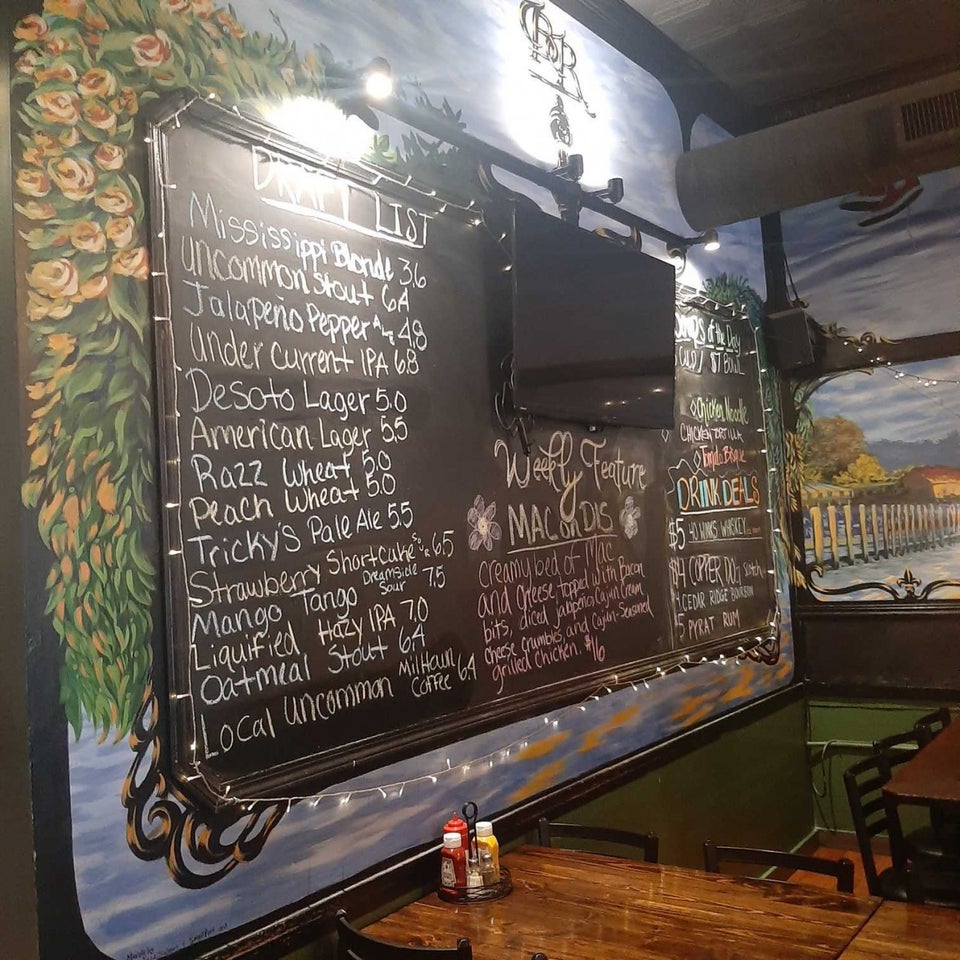 DRAFT LIST
Mississippi Blonde 3.6
uncommon Stout 6.4
Jalapeño Pepper Ale 4.8
Under Current IPA 6.8
Desoto Lager 5.0
American Lager 5.5
Razz Wheat 5.0
Peach Wheat 5.0
Tricky's Pale Ale 5.5
Strawberry Shortcake Sour 6.5
Mango Tango Dreamside Sour 7.5
Liquified Hazy IPA 7.0
Oatmeal Stout 6.4
Local uncommon Coffee 6.4
Weekly Feature
MAC ON DIS
creamy bed of Mac
and cheese topped with Bacon
bits, diced jalapeños, Cajun Cream
cheese crumbles, and cajun-seasoned
grilled chicken. $16
of the Day
CUP/ $7 BOWL
Chicken Noodle
CHICKEN TORTILLA
Tomato Bisque
DRINK DEALS
$5 40 WINKS WHISKEY
$4 COPPER DOG SCOTCH
4 CEDAR RIDGE BOURBON
5 PYRAT RUM